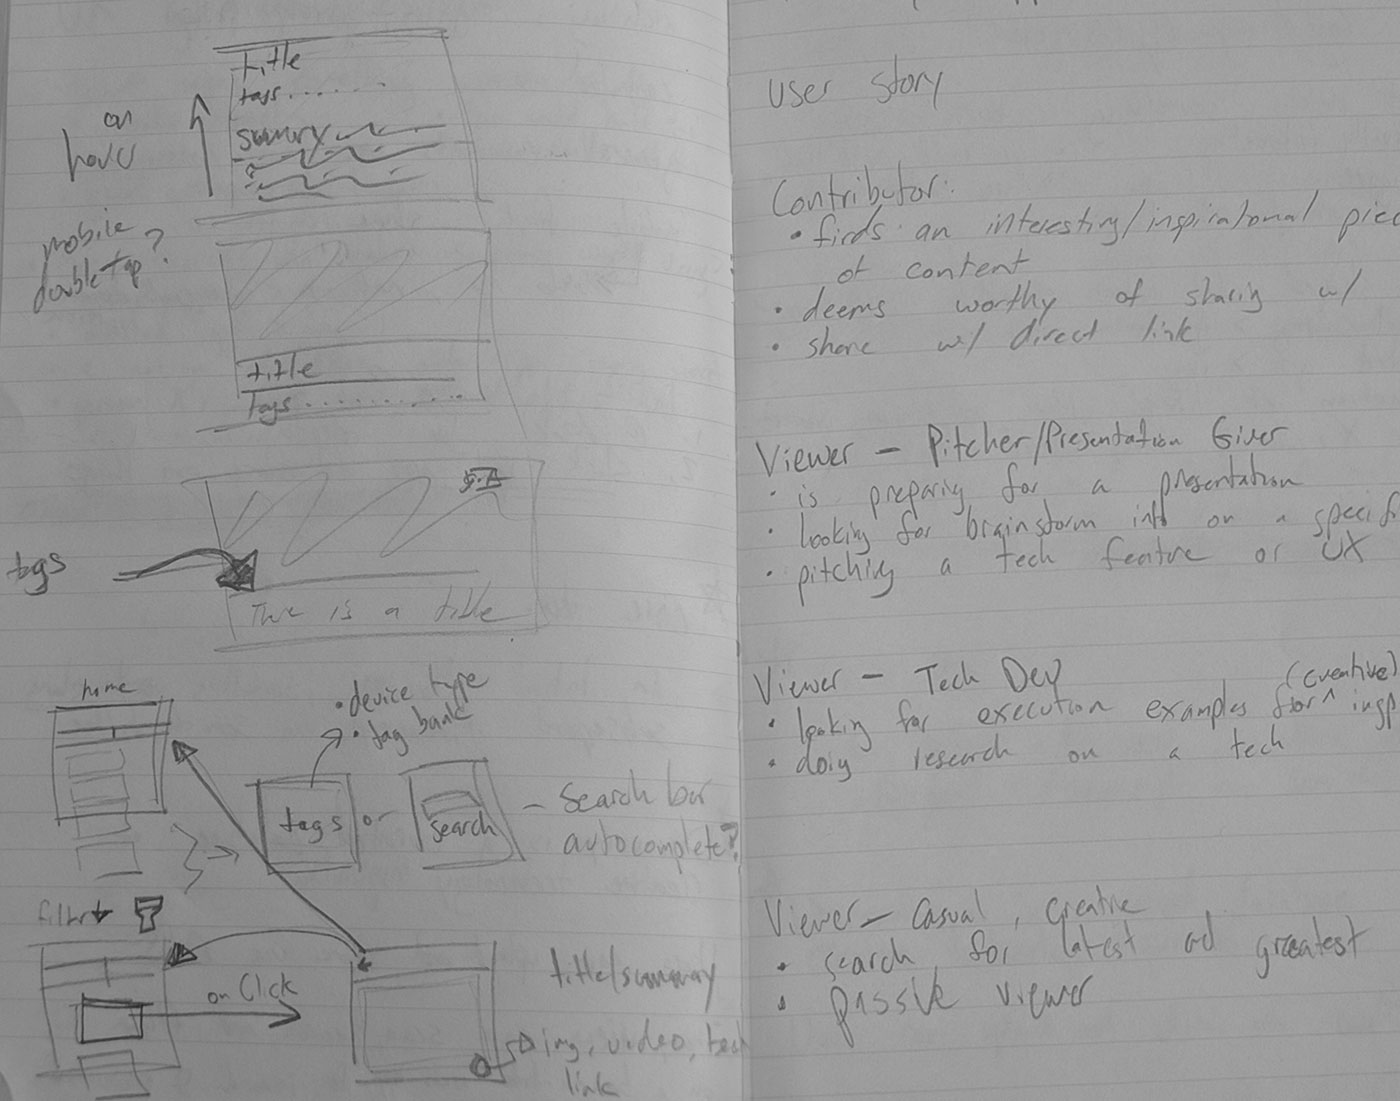 title
tags.......
on
hover
summary
mobile
double tap?
title
tags...........
tags
This is a title
home
• device type
• tag bank
tags
or
search
– Search bar
autocomplete?
filter
on Click
title/summary
img, video, tech
link
User story
Contributor:
• finds an interesting/inspirational piec
of content
• deems worthy of sharing w/
• share w/ direct link
Viewer – Pitcher/Presentation Giver
• is preparing for a presentation
• looking for brainstorm info on a specifi
• pitching a tech feature or UX
Viewer – Tech Dev
(creative)
• looking for execution examples for ^ insp
• doing research on a tech
Viewer – Casual, creative
• search for latest and greatest
• passive viewer